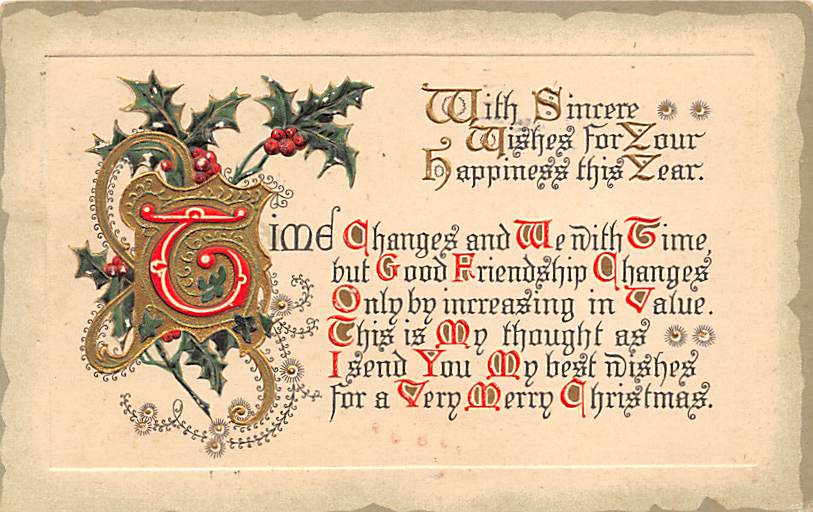 With Sincere
Wishes for Your
Happiness this Year.
Time Changes and We with Time,
but Good Friendship Changes
Only by increasing in Value.
This is My thought as
I send You My best wishes
for a Very Merry Christmas.